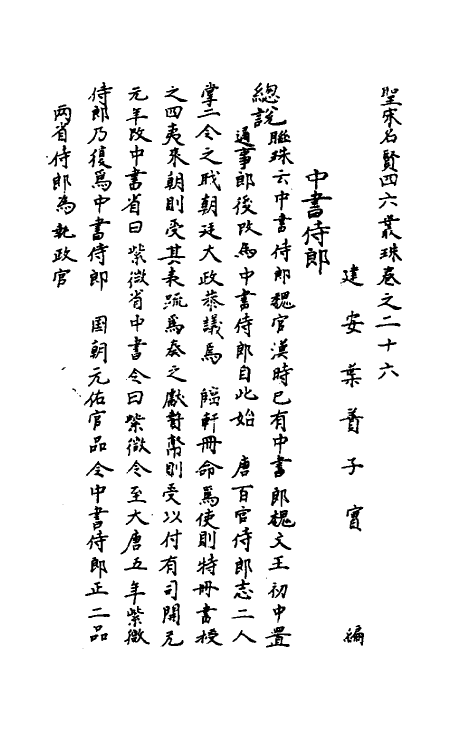 聖宋名賢四六叢珠卷之二十六
建安葉蕡子實 編
中書侍郎
總說 聮珠云中書侍郎魏官漢時已有中書郎魏文王初中置
通事郎後改為中書侍郎自此始 唐百官侍郎志二人
掌二令之戝朝廷大政叅議焉 臨軒冊命為使則特冊書授
之四夷來朝則受其表疏為奏之獻贄幣則受以付有司開元
元年改中書省曰紫微省中書令曰紫微令至大唐五年紫微
侍郎乃復為中書侍郎 國朝元佑官品令中書侍郎正二品
兩省侍郎為執政官